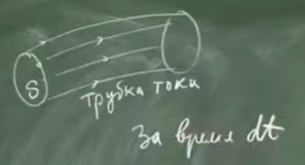 S
трубка токи
За время dt